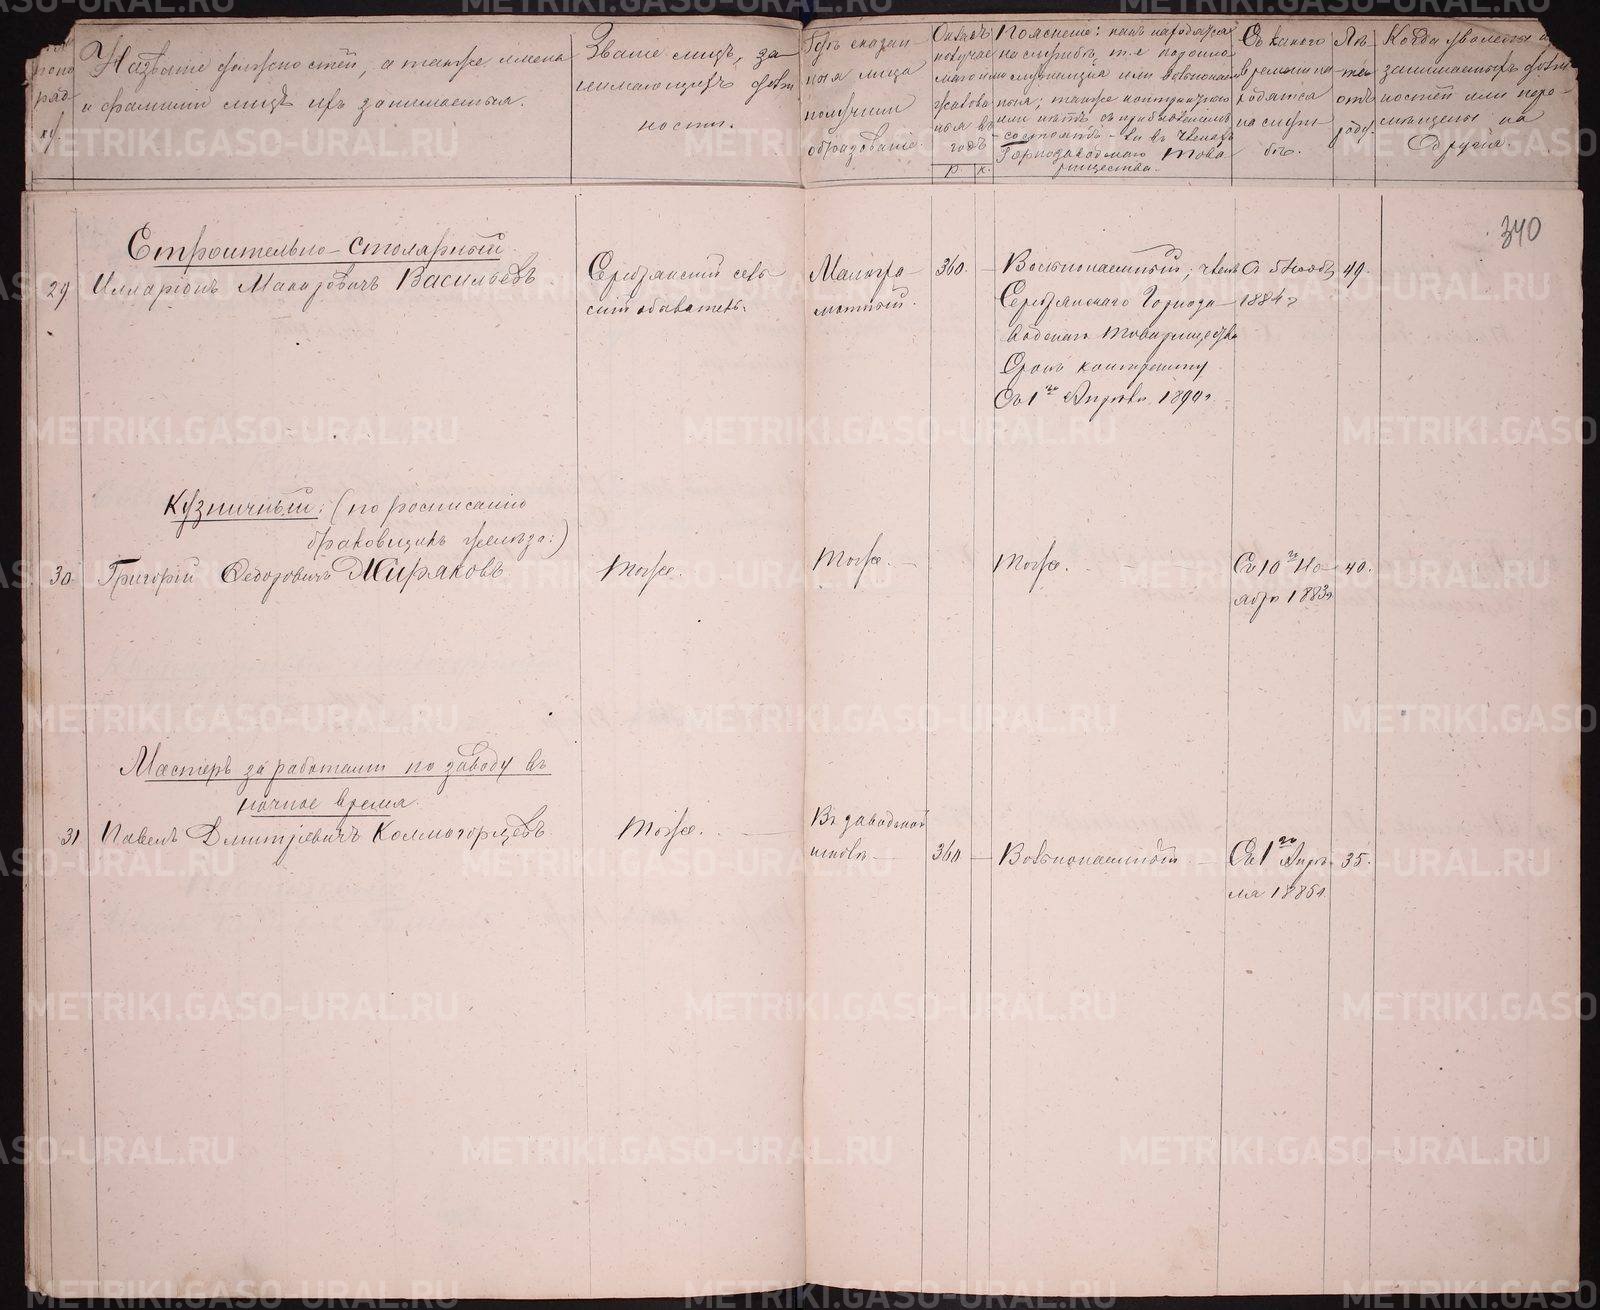 Названiе должностей, а также имена
и фамилiи лицъ ихъ занимаемыхъ.
Званiе лицъ, за
нимающихъ долж
ности.
Гдѣ сказан-
ныя лица
получили
образованiе.
Окладъ
получае
маго
жалова
нья въ
годъ
р. к.
Поясненiе: какъ находятся
на службѣ, т. е.
или вольнонаем
ные; также контрактъ
или нѣтъ съ
состоятъ-ли въ членахъ
Горнозаводскаго Това
рищества.
Съ какого
времени на
ходятся
на служ
бѣ.
Лѣ-
та
отъ
роду.
Когда уволены
занимаемыхъ долж-
ностей или пере-
мѣщены на
другiя.
340
Строительно-столярный
29 Илларiонъ Макаровичъ Васильевъ
Серебрянскiй сель
скiй обыватель.
Малогра-
мотный.
360. —
Вольнонаемный; членъ
Серебрянскаго Горноза-
водскаго Товарищества
Срокъ контракту
Съ 1го Апрѣля 1890 г
1884 г
49.
Кузничный: (по росписанiю
браковщикъ желѣза:)
30. Григорiй Федоровичъ Жиряковъ
Тоже.
Тоже. —
Тоже. — —
Съ 10го Но-
ября 1883 г
40.
Мастеръ за работами по заводу въ
ночное время.
31 Павелъ Дмитрiевичъ Колмогорцевъ
Тоже. —
Въ заводской
школѣ —
360 —
Вольнонаемный —
Съ 1го Апрѣ
ля 1885 г.
35.
METRIKI.GASO-URAL.RU